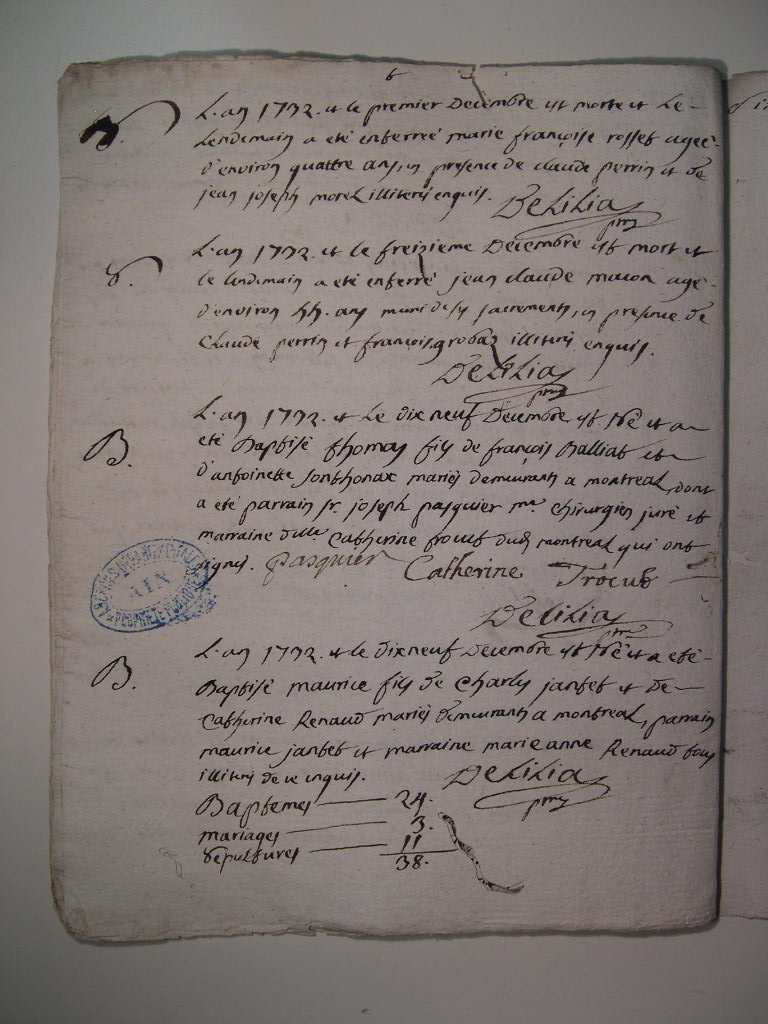 6
S.
L'an 1772. et le premier Decembre est morte et Le
Lendemain a eté enterreé marie françoise rosset ageé
d'environ quattre ans, en presence de claude perrin et de
jean joseph morel illiterés enquis. Delilia
S.
L'an 1772. et le treizieme Decembre est mort et
le lendemain a eté enterré jean claude macon agé
d'environ 55. ans muni de ses sacrements, en presence de
Claude perrin et françois grobas illiterés enquis.
Delilia
B.
L'an 1772. et Le dixneuf Decembre est Né et a
eté Baptisé thomas fils de françois Balliat et
d'antoinette sonthonax mariés demeurants a montreal, dont
a eté parrain sr. joseph pasquier me. chirurgien juré et
marraine dlle. Catherine trocut dudt montreal qui ont
signés. pasquier Catherine Trocut
Delilia
B.
L'an 1772. et le dixneuf Decembre est Né et a eté
Baptisé maurice fils de Charles jantet et De
Catherine Renaud mariés demeurants a montreal, parrain
maurice jantet et marraine marieanne Renaud tous
illiterés de ce enquis. Delilia
Baptemes 24.
mariages 3.
Sepultures 11
38.
ARCHIVES DEPARTEMENTALES
AIN
PROPRIETE PUBLIQUE